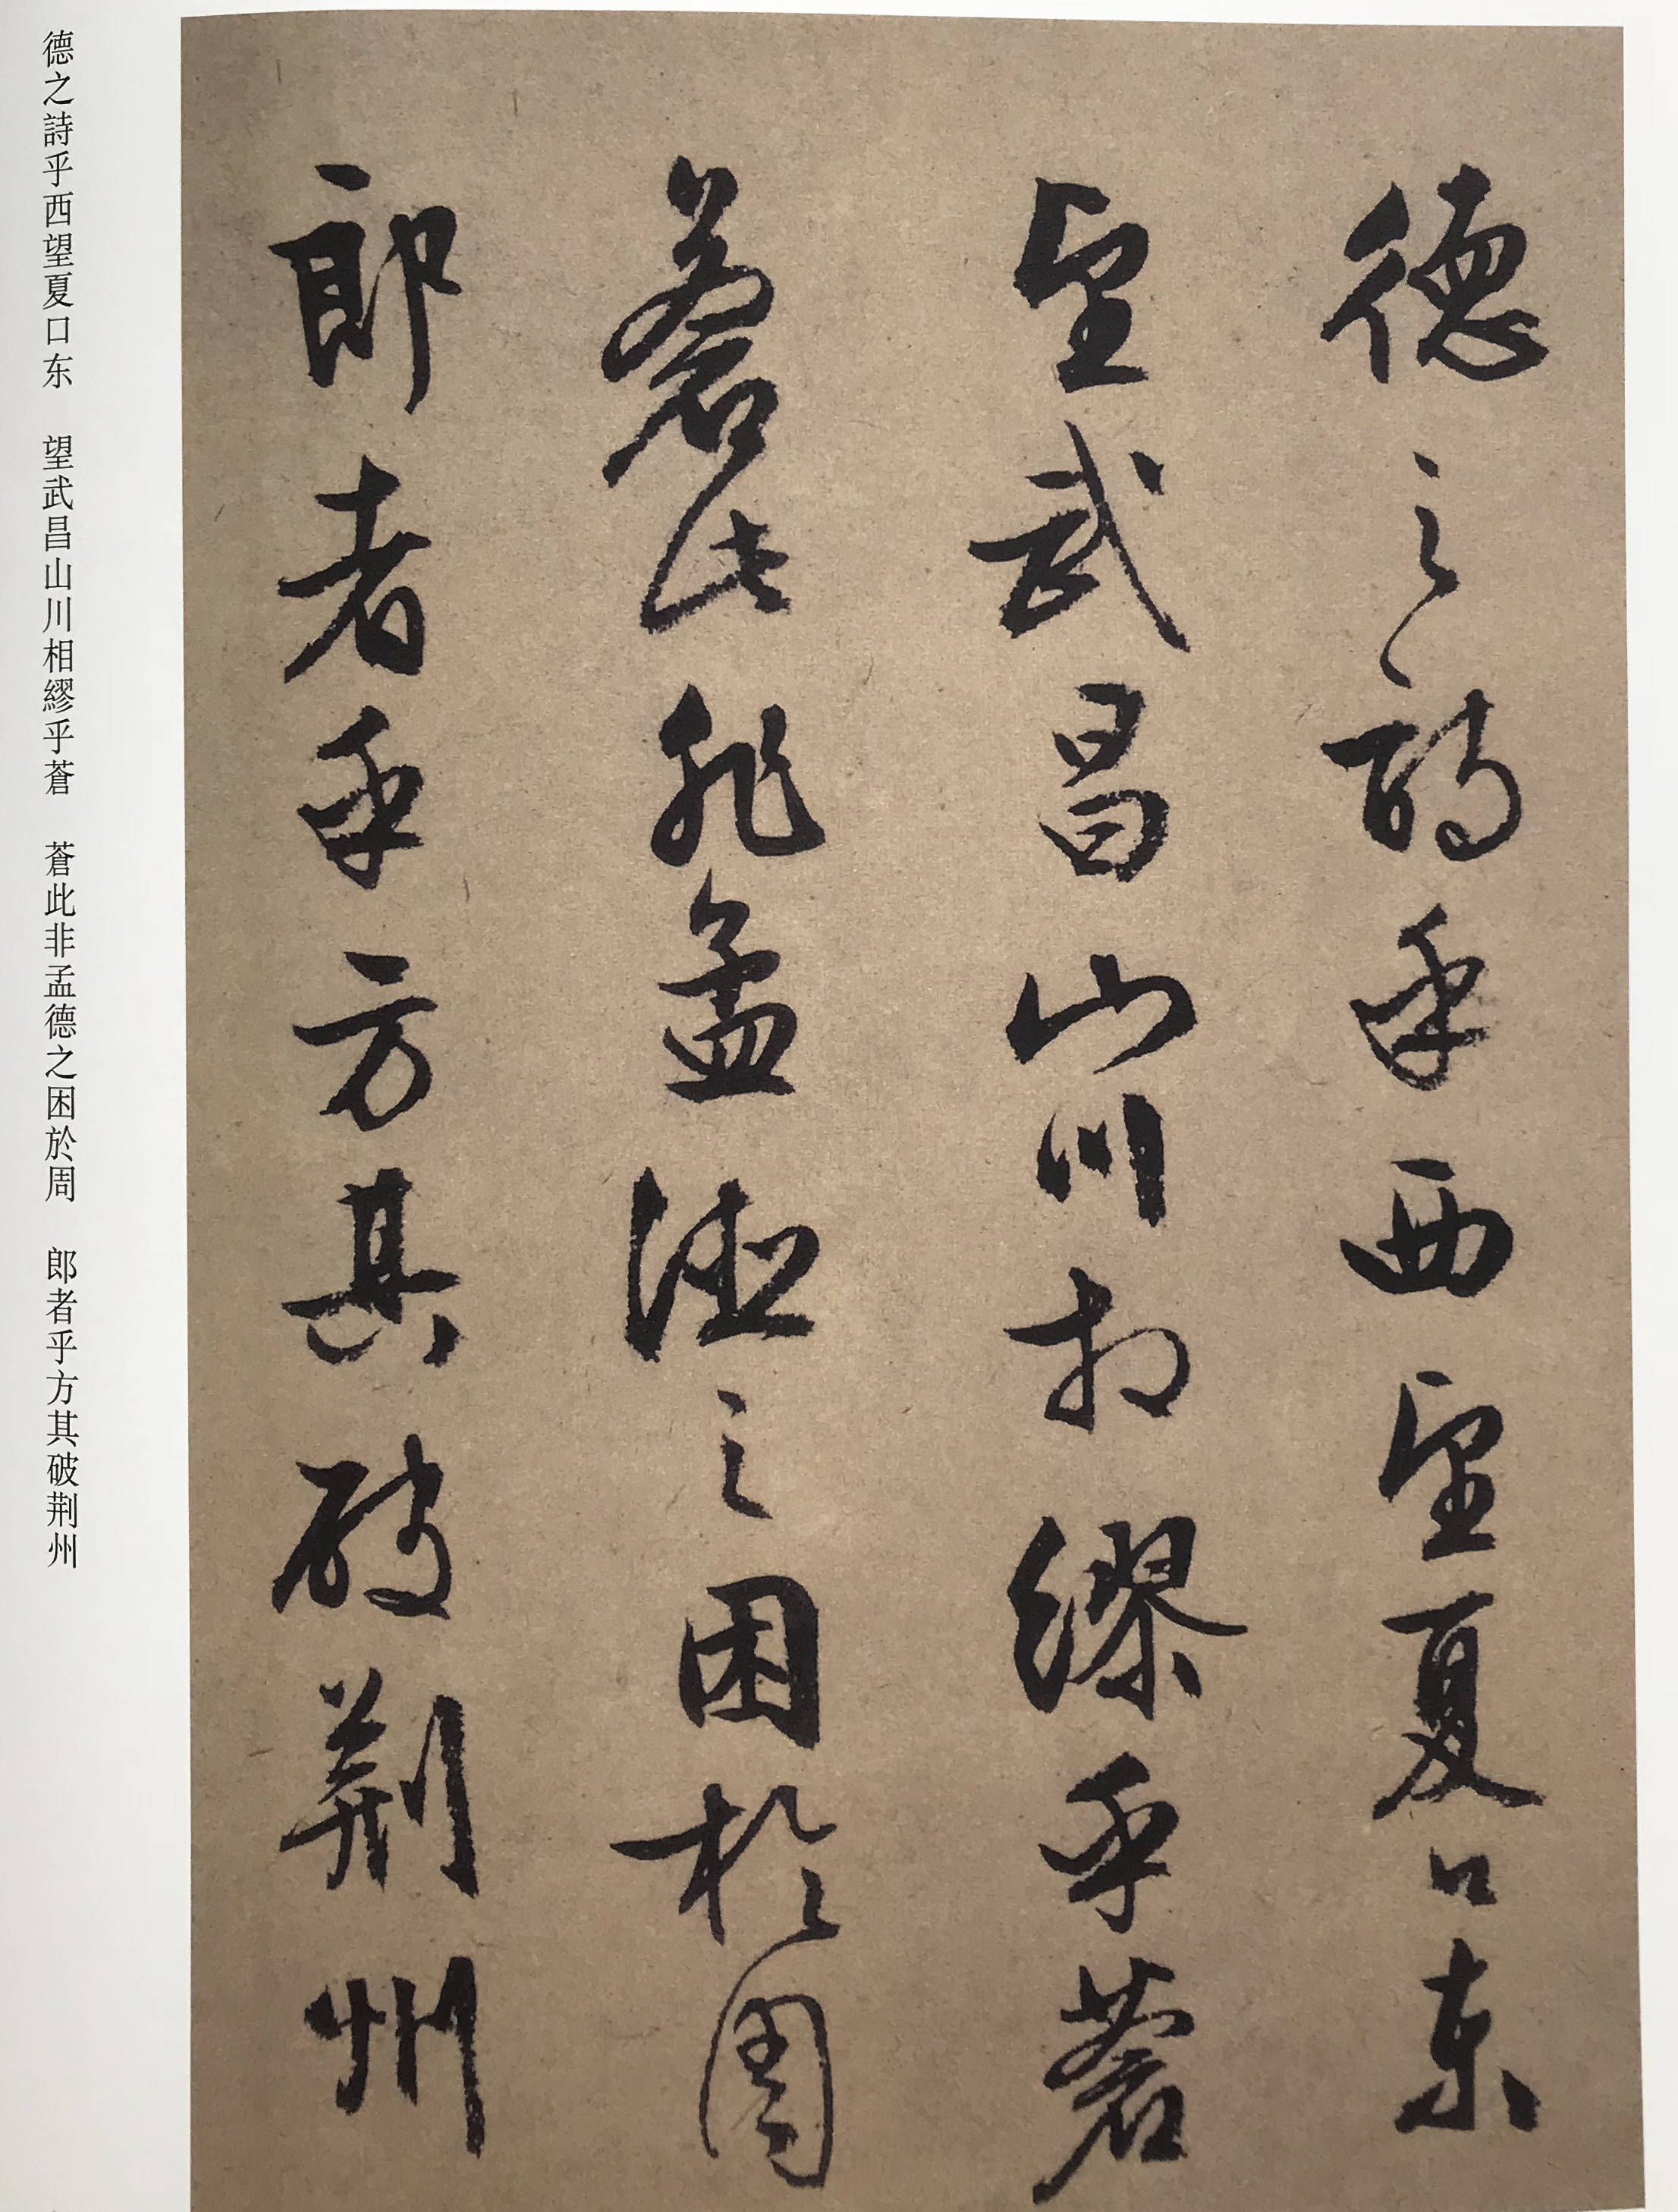 德之詩乎西望夏口东
望武昌山川相繆乎蒼
蒼此非孟德之困於周
郎者乎方其破荆州
德之詩乎西望夏口东　望武昌山川相繆乎蒼　蒼此非孟德之困於周　郎者乎方其破荆州